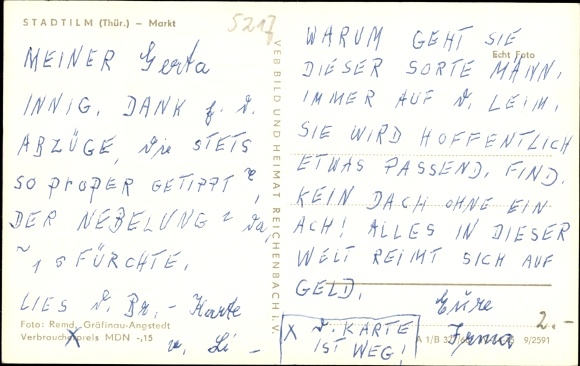 STADTILM (Thür.) – Markt
5217
MEINER Gerta
INNIG. DANK f. d.
ABZÜGE, die STETS
SO PROPER GETIPPT
DER NEBELUNG
FÜRCHTE.
LIES d. Br.-Karte
v. Li –
Foto: Remd, Gräfinau-Angstedt
Verbraucherpreis MDN -,15
VEB BILD UND HEIMAT REICHENBACH i. V.
Echt Foto
WARUM GEHT SIE
DIESER SORTE MANN,
IMMER AUF D. LEIM.
SIE WIRD HOFFENTLICH
ETWAS PASSEND. FIND.
KEIN DACH OHNE EIN
ACH! ALLES IN DIESER
WELT REIMT SICH AUF
GELD.
Eure
Irma
2.-
X D. KARTE
IST WEG!
A 1/B
9/2591